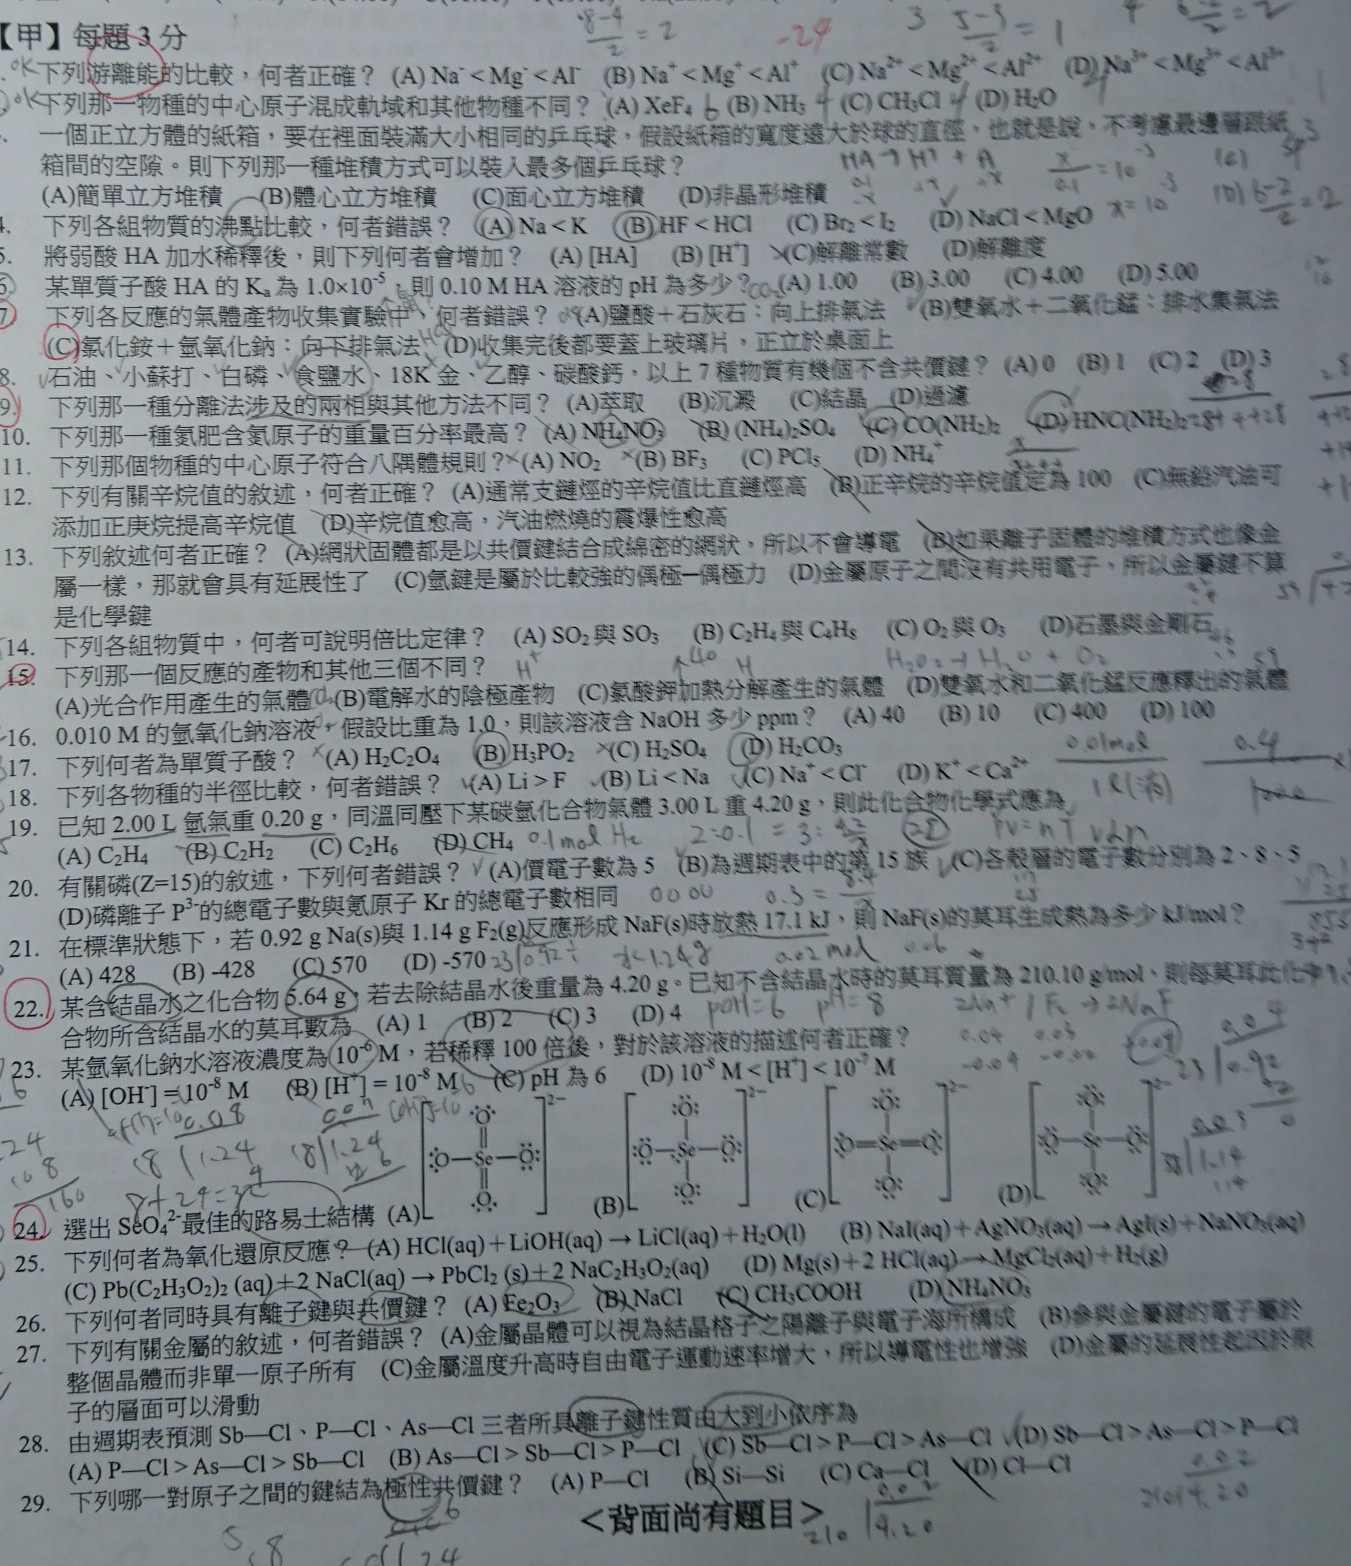 【甲】每題 3 分
下列游離能的比較，何者正確？ (A) Na⁻ < Mg⁻ < Al⁻ (B) Na⁺ < Mg⁺ < Al⁺ (C) Na²⁺ < Mg²⁺ < Al²⁺ (D) Na³⁺ < Mg³⁺ < Al³⁺
下列那一物種的中心原子混成軌域和其他物種不同？ (A) XeF₄ (B) NH₃ (C) CH₃Cl (D) H₂O
一個正立方體的紙箱，要在裡面裝滿大小相同的乒乓球，假設紙箱的寬度遠大於球的直徑，也就是說，不考慮最邊層跟紙
箱間的空隙。則下列那一種堆積方式可以裝入最多個乒乓球？
(A)簡單立方堆積 (B)體心立方堆積 (C)面心立方堆積 (D)非晶形堆積
4. 下列各組物質的沸點比較，何者錯誤？ (A) Na < K (B) HF < HCl (C) Br₂ < I₂ (D) NaCl < MgO
5. 將弱酸 HA 加水稀釋後，則下列何者會增加？ (A) [HA] (B) [H⁺] (C)解離常數 (D)解離度
6. 某單質子酸 HA 的 Kₐ 為 1.0×10⁻⁵，則 0.10 M HA 溶液的 pH 為多少？ (A) 1.00 (B) 3.00 (C) 4.00 (D) 5.00
7. 下列各反應的氣體產物收集實驗中，何者錯誤？ (A)鹽酸＋石灰石：向上排氣法 (B)雙氧水＋二氧化錳：排水集氣法
(C)氯化銨＋氫氧化鈉：向下排氣法 (D)收集完後都要蓋上玻璃片，正立於桌面上
8. 石油、小蘇打、白磷、食鹽水、18K 金、乙醇、碳酸鈣，以上 7 種物質有幾個不含共價鍵？ (A) 0 (B) 1 (C) 2 (D) 3
9. 下列那一種分離法涉及的兩相與其他方法不同？ (A)萃取 (B)沉澱 (C)結晶 (D)過濾
10. 下列那一種氮肥含氮原子的重量百分率最高？ (A) NH₄NO₃ (B) (NH₄)₂SO₄ (C) CO(NH₂)₂ (D) HNC(NH₂)₂
11. 下列那個物種的中心原子符合八隅體規則？ (A) NO₂ (B) BF₃ (C) PCl₅ (D) NH₄⁺
12. 下列有關辛烷值的敘述，何者正確？ (A)通常支鏈烴的辛烷值比直鏈烴高 (B)正辛烷的辛烷值定為 100 (C)無鉛汽油可
添加正庚烷提高辛烷值 (D)辛烷值愈高，汽油燃燒的震爆性愈高
13. 下列敘述何者正確？ (A)網狀固體都是以共價鍵結合成綿密的網狀，所以不會導電 (B)如果離子固體的堆積方式也像金
屬一樣，那就會具有延展性了 (C)氫鍵是屬於比較強的偶極─偶極力 (D)金屬原子之間沒有共用電子，所以金屬鍵不算
是化學鍵
14. 下列各組物質中，何者可說明倍比定律？ (A) SO₂ 與 SO₃ (B) C₂H₄ 與 C₄H₈ (C) O₂ 與 O₃ (D)石墨與金剛石
15. 下列那一個反應的產物和其他三個不同？
(A)光合作用產生的氣體 (B)電解水的陰極產物 (C)氯酸鉀加熱分解產生的氣體 (D)雙氧水和二氧化錳反應釋出的氣體
16. 0.010 M 的氫氧化鈉溶液，假設比重為 1.0，則該溶液含 NaOH 多少 ppm？ (A) 40 (B) 10 (C) 400 (D) 100
17. 下列何者為單質子酸？ (A) H₂C₂O₄ (B) H₃PO₂ (C) H₂SO₄ (D) H₂CO₃
18. 下列各物種的半徑比較，何者錯誤？ (A) Li > F (B) Li < Na (C) Na⁺ < Cl⁻ (D) K⁺ < Ca²⁺
19. 已知 2.00 L 氫氣重 0.20 g，同溫同壓下某碳氫化合物氣體 3.00 L 重 4.20 g，則此化合物化學式應為
(A) C₂H₄ (B) C₂H₂ (C) C₂H₆ (D) CH₄
20. 有關磷(Z=15)的敘述，下列何者錯誤？ (A)價電子數為 5 (B)為週期表中的第 15 族 (C)各殼層的電子數分別為 2、8、5
(D)磷離子 P³⁻的總電子數與氪原子 Kr 的總電子數相同
21. 在標準狀態下，若 0.92 g Na(s)與 1.14 g F₂(g)反應形成 NaF(s)時放熱 17.1 kJ，則 NaF(s)的莫耳生成熱為多少 kJ/mol？
(A) 428 (B) -428 (C) 570 (D) -570
22. 某含結晶水之化合物 5.64 g，若去除結晶水後重量為 4.20 g。已知不含結晶水時的莫耳質量為 210.10 g/mol，則每莫耳此化
合物所含結晶水的莫耳數為 (A) 1 (B) 2 (C) 3 (D) 4
23. 某氫氧化鈉水溶液濃度為 10⁻⁶ M，若稀釋 100 倍後，對於該溶液的描述何者正確？
(A) [OH⁻] = 10⁻⁸ M (B) [H⁺] = 10⁻⁸ M (C) pH 為 6 (D) 10⁻⁸ M < [H⁺] < 10⁻⁷ M
24. 選出 SeO₄²⁻最佳的路易士結構 (A) (B) (C) (D)
25. 下列何者為氧化還原反應？ (A) HCl(aq)＋LiOH(aq) → LiCl(aq)＋H₂O(l) (B) NaI(aq)＋AgNO₃(aq) → AgI(s)＋NaNO₃(aq)
(C) Pb(C₂H₃O₂)₂ (aq)＋2 NaCl(aq) → PbCl₂ (s)＋2 NaC₂H₃O₂(aq) (D) Mg(s)＋2 HCl(aq) → MgCl₂(aq)＋H₂(g)
26. 下列何者同時具有離子鍵與共價鍵？ (A) Fe₂O₃ (B) NaCl (C) CH₃COOH (D) NH₄NO₃
27. 下列有關金屬的敘述，何者錯誤？ (A)金屬晶體可以視為結晶格子之陽離子與電子海所構成 (B)參與金屬鍵的電子屬於
整個晶體而非單一原子所有 (C)金屬溫度升高時自由電子運動速率增大，所以導電性也增強 (D)金屬的延展性起因於原
子的層面可以滑動
28. 由週期表預測 Sb—Cl、P—Cl、As—Cl 三者所具離子鍵性質由大到小依序為
(A) P—Cl > As—Cl > Sb—Cl (B) As—Cl > Sb—Cl > P—Cl (C) Sb—Cl > P—Cl > As—Cl (D) Sb—Cl > As—Cl > P—Cl
29. 下列哪一對原子之間的鍵結為極性共價鍵？ (A) P—Cl (B) Si—Si (C) Ca—Cl (D) Cl—Cl
＜背面尚有題目＞